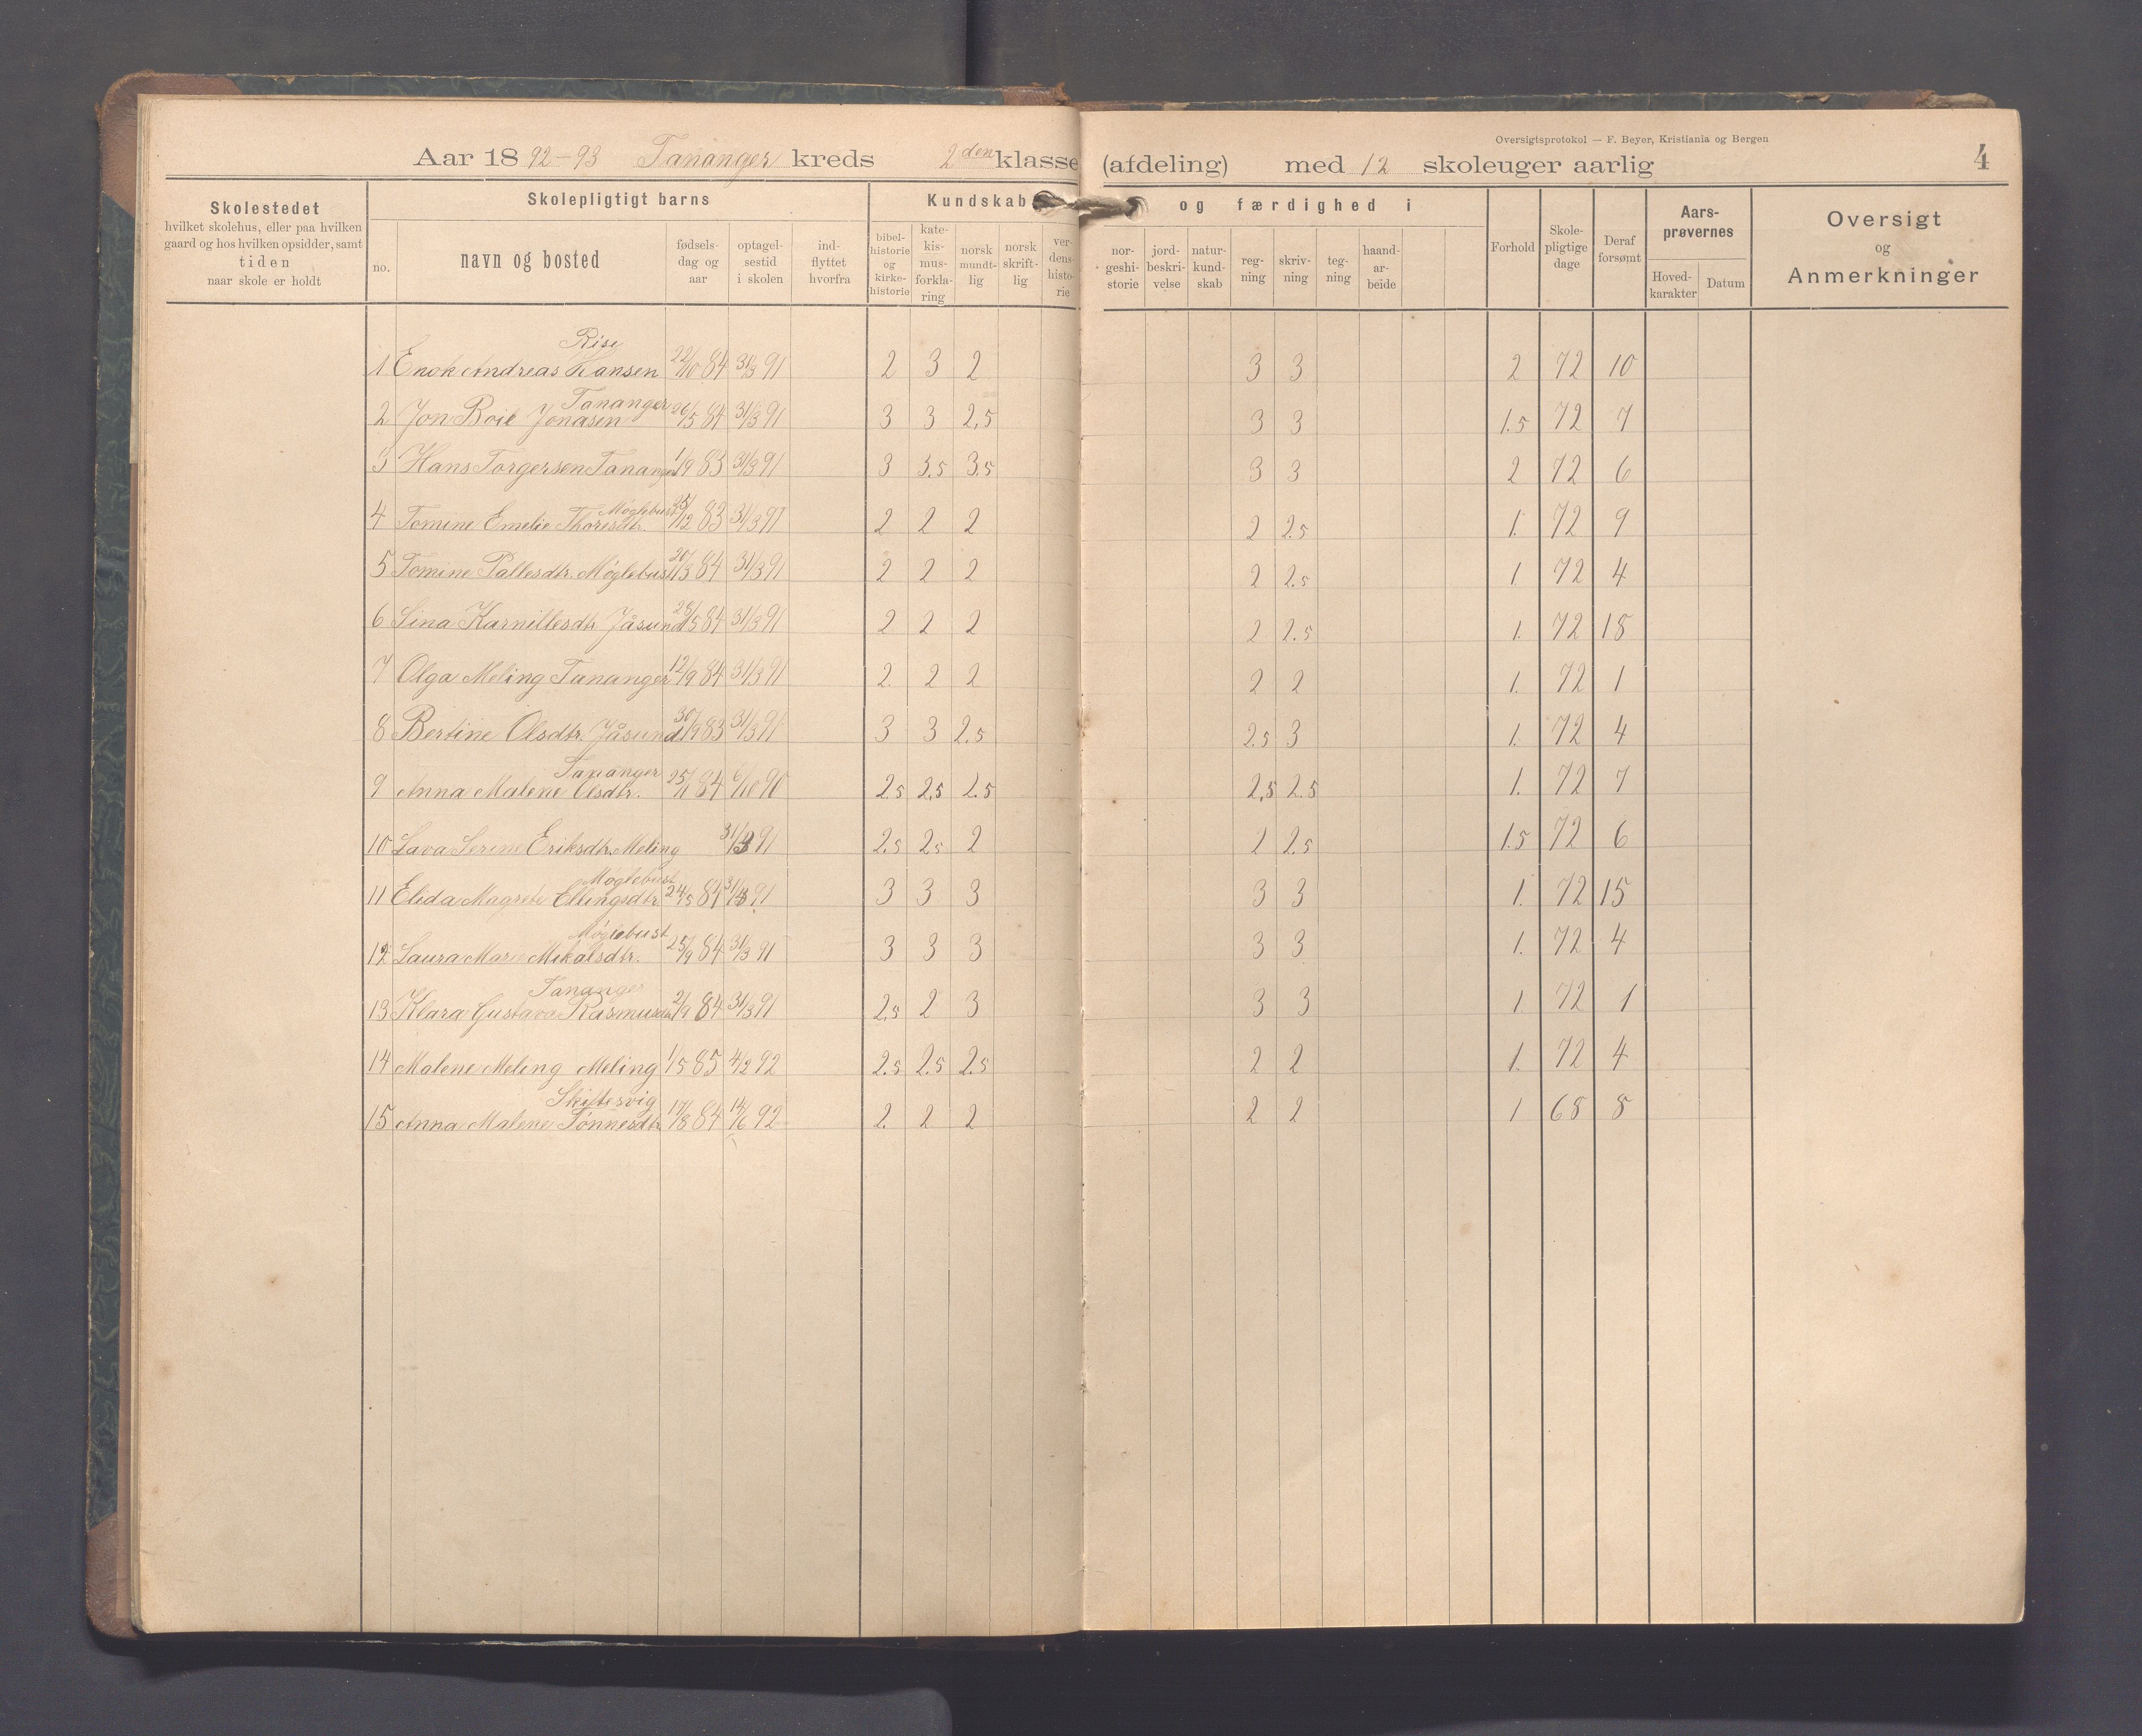 Oversigtsprotokol — F. Beyer, Kristiania og Bergen
Aar 1892-93 Tananger kreds 2den klasse (afdeling) med 12 skoleuger aarlig 4
Skolestedet
hvilket skolehus, eller paa hvilken
gaard og hos hvilken opsidder, samt
tiden
naar skole er holdt
Skolepligtigt barns
no.
navn og bosted
fødsels-
dag og
aar
optagel-
sestid
i skolen
ind-
flyttet
hvorfra
Kundskab og færdighed i
bibel-
historie
og
kirke-
historie
kate-
kis-
mus-
forkla-
ring
norsk
mundt-
lig
norsk
skrift-
lig
ver-
dens-
histo-
rie
nor-
geshi-
storie
jord-
beskri-
velse
natur-
kund-
skab
reg-
ning
skriv-
ning
teg-
ning
haand-
ar-
beide
Forhold
Skole-
pligtige
dage
Deraf
forsømt
Aars-
prøvernes
Hoved-
karakter
Datum
Oversigt
og
Anmerkninger
Rise
1 Enok Andreas Hansen 22/10 84 31/3 91 2 3 2 3 3 2 72 10
Tananger
2 Jon Boie Jonasen 26/5 84 31/3 91 3 3 2,5 3 3 1.5 72 7
3 Hans Torgersen Tananger 1/9 83 31/3 91 3 3.5 3.5 3 3 2 72 6
Møglebust
4 Tomine Emelie Thoresdtr. 25/12 83 31/3 91 2 2 2 2 2.5 1. 72 9
5 Tomine Pallesdtr. Møglebust 20/3 84 31/3 91 2 2 2 2 2.5 1 72 4
6 Sina Karnillesdtr Jåsund 28/5 84 31/3 91 2 2 2 2 2.5 1. 72 18
7 Olga Meling Tananger 12/9 84 31/3 91 2 2 2 2 2 1. 72 1
8 Bertine Olsdtr. Jåsund 30/9 83 31/3 91 3 3 2.5 2.5 3 1. 72 4
Tananger
9 Anna Malene Olsdtr. 25/1 84 6/10 90 2.5 2,5 2.5 2,5 2.5 1. 72 7
10 Lava Serine Eriksdtr. Meling 31/3 91 2.5 2.5 2 2 2.5 1.5 72 6
Møglebust
11 Elida Magrete Ellingsdtr 24/5 84 31/3 91 3 3 3 3 3 1. 72 15
Møglebust
12 Laura Marie Mikalsdtr. 25/9 84 31/3 91 3 3 3 3 3 1. 72 4
Tananger
13 Klara Gustava Rasmusdtr 2/9 84 31/3 91 2,5 2 3 3 3 1 72 1
14 Malene Meling Meling 1/5 85 4/2 92 2.5 2.5 2.5 2 2 1. 72 4
Skiftesvig
15 Anna Malene Tønnesdtr 17/8 84 14/6 92 2. 2 2 2 2 1 68 8